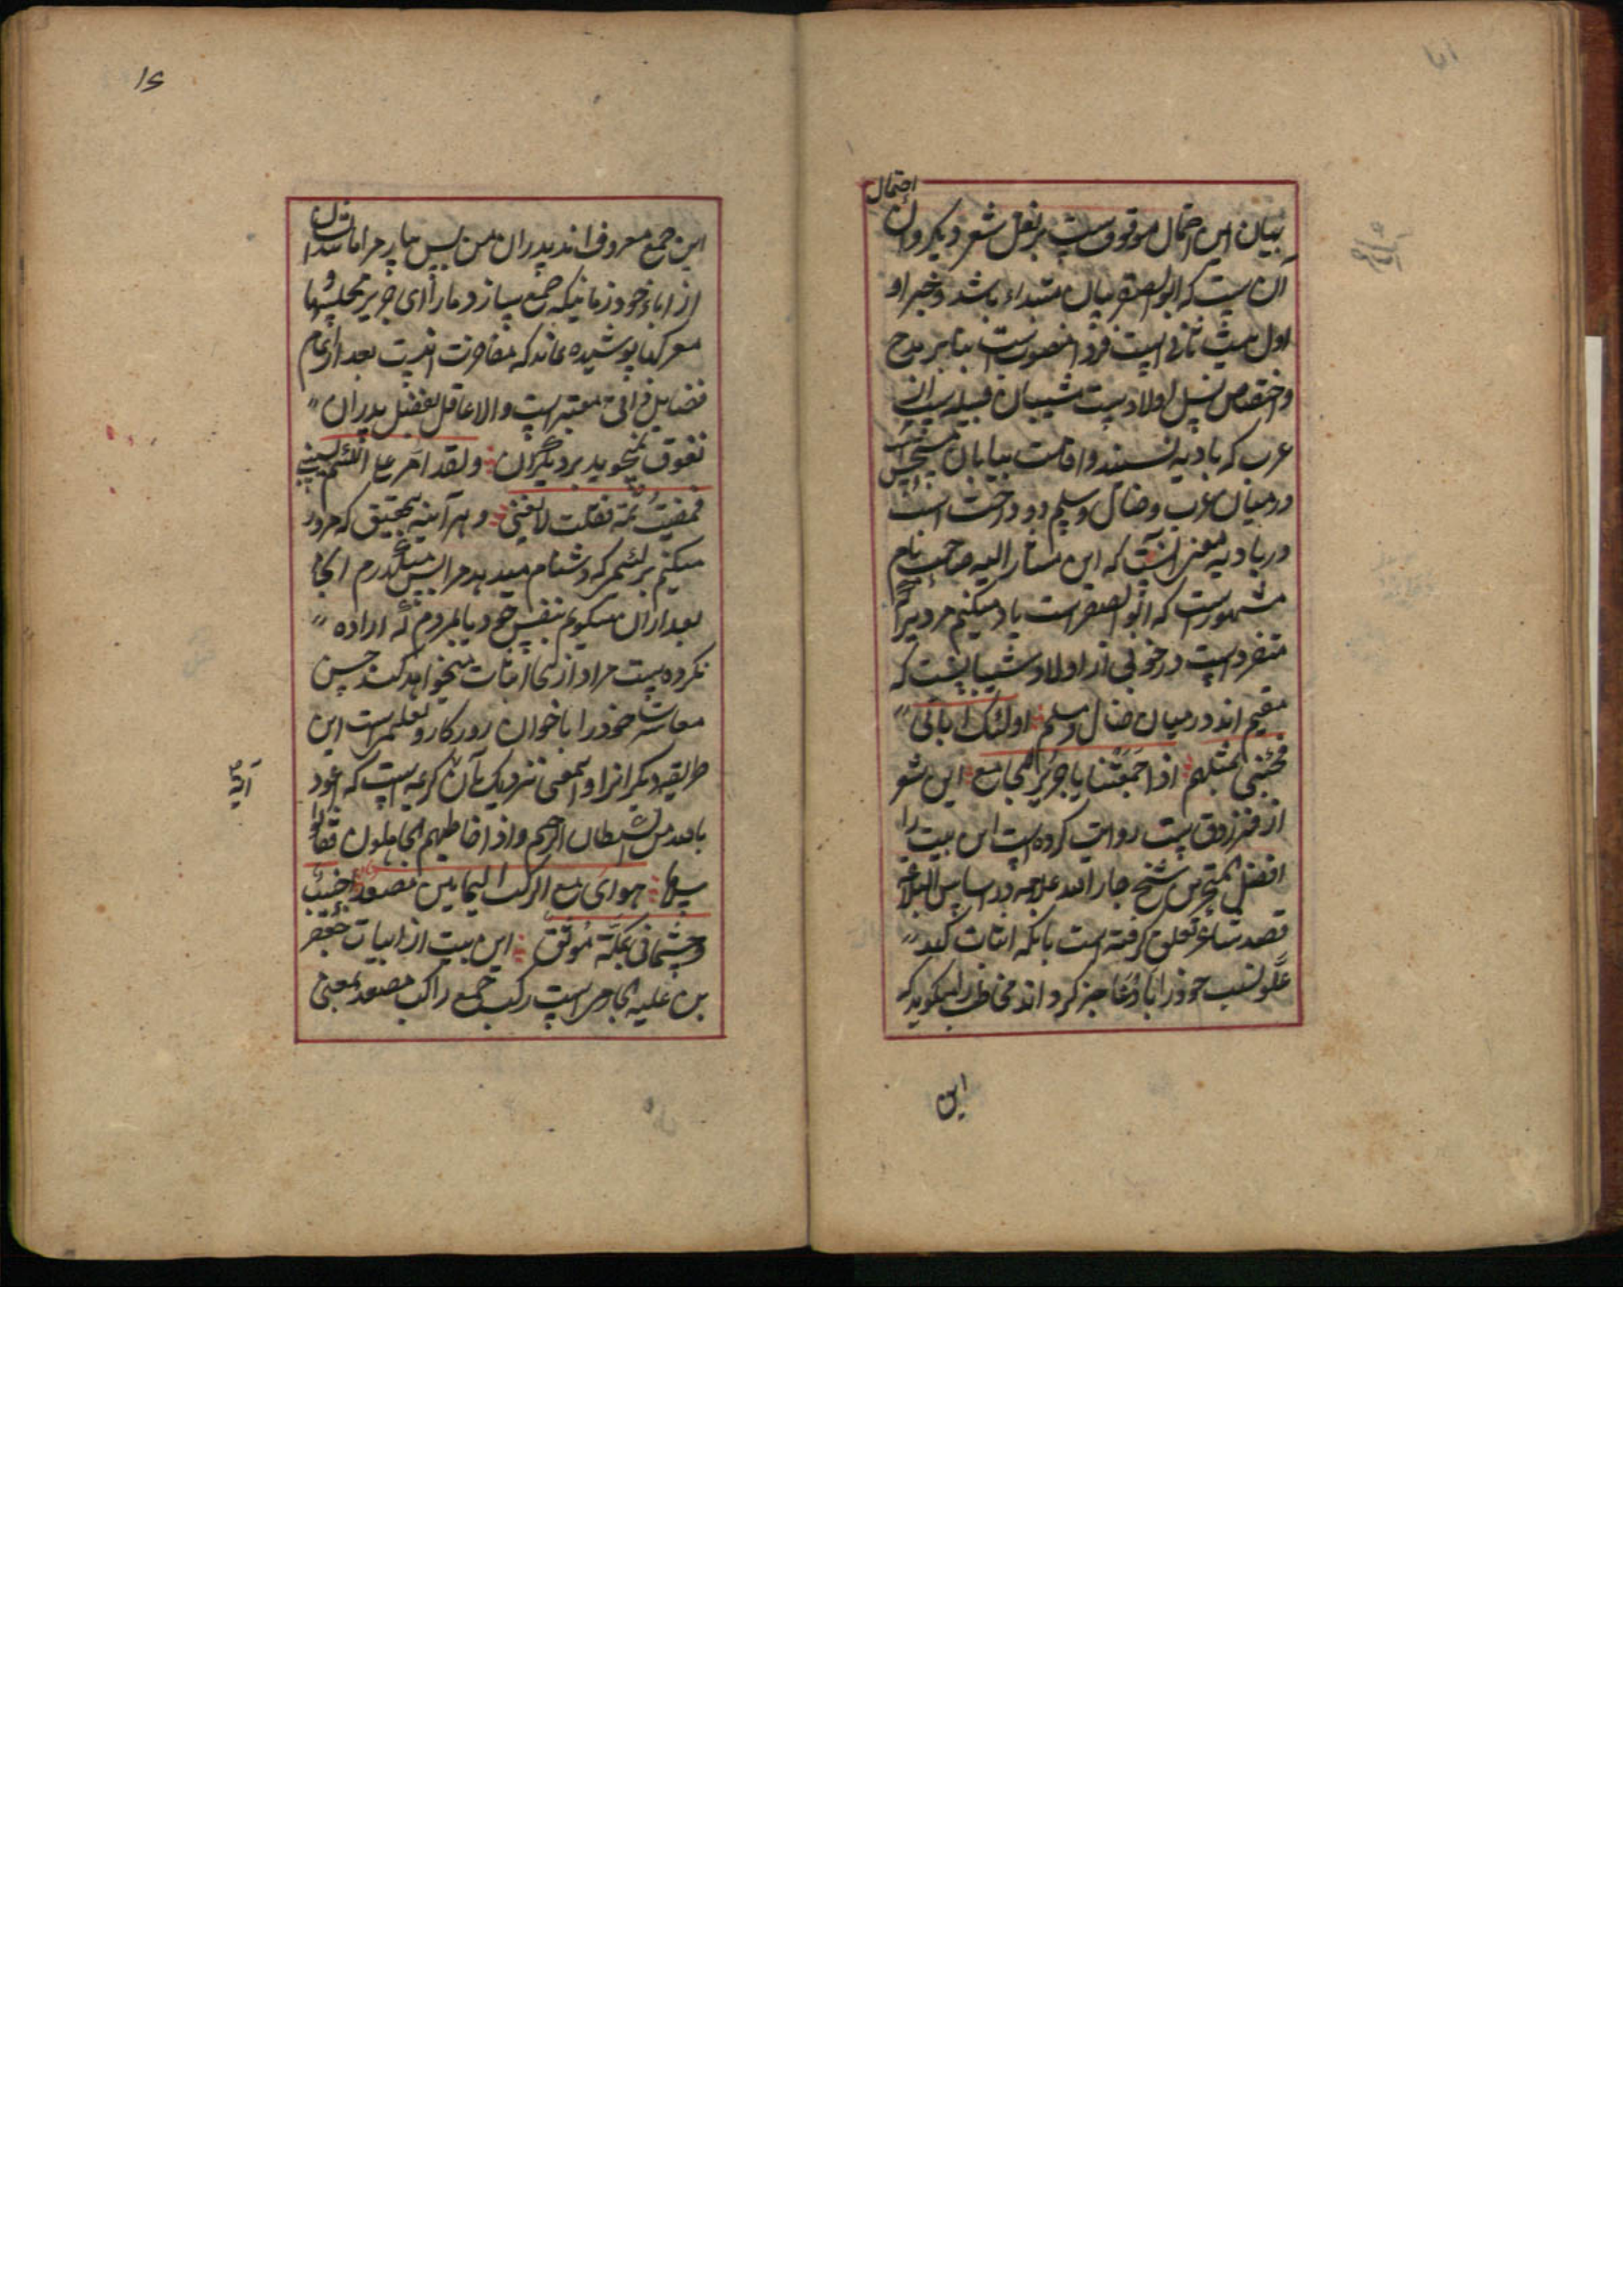 احتمال
بیان این احتمال موقوفست بر نقل شعر دیگر و آن
آن نیست که ابو الصقر بیان مبتداء باشد و خبر او
اول بیت ثانی است فردا منصوبست بنابر مدح
و اختصاص نسل اولادست شیبان قبیله است از
عرب که بادیه نشینند و اقامت بیابان
در میان عرب و ضال و سلم دو درخت است
در بادیه معنی آنست که این مشار الیه صاحب نام
مشهورست که ابو الصقر است یاد میکنم مردیرا که
منفردست در خوبی از اولاد شیبانست که
مقیم اند در میان ضال و سلم اولئک ابائی
فجئنی بمثلهم اذا جمعتنا یا جریر المجامع این شعر
از فرزدق ست روایت کرده است این بیت را
افضل شیخ جار الله علامه در اساس البلاغه
قصد شاعر تعلق گرفته است بانکه اثبات کند
علو نسب خود را با دعا عجز کرد اند مخاطب را میگوید که
این
۱۶
این جمع معروف اند پدران من پس بیار مرا مانند ان
از اباء خود زمانیکه جمع سازد ما را ای جریر مجلسها و
معرکها پوشیده نماند که مفاخرت بعد از تمام
فضایل ذاتی معتبر است و الا عاقل بفضل پدران
تفوق نمیجوید بر دیگران ولقد امر علی اللئیم یسبنی
فمضیت ثمه فقلت لا یعنینی و هر آینه بتحقیق که مرور
میکنم بر لئیمی که دشنام میدهد مرا پس میگذرم انجا
بعد از ان میگویم بنفس خود یا بمردم که اراده
نکرده است مراد ازینجا اثبات میخواهد کند حسن
معاشرت خود را باخوان روزکار و تعلیم است این
طریقه دیگرانرا و بمعنی نزدیک بآن کریمه است که اعوذ
آیه
بالله من الشیطان الرجیم و اذا خاطبهم الجاهلون قالوا
سلاما هوای مع الرکب الیمانین مصعد جنیب
و جثمانی بمکة موثق این بیت از ابیات جعفر
بن علبه الحارثی است رکب جمع راکب مصعد بمعنی